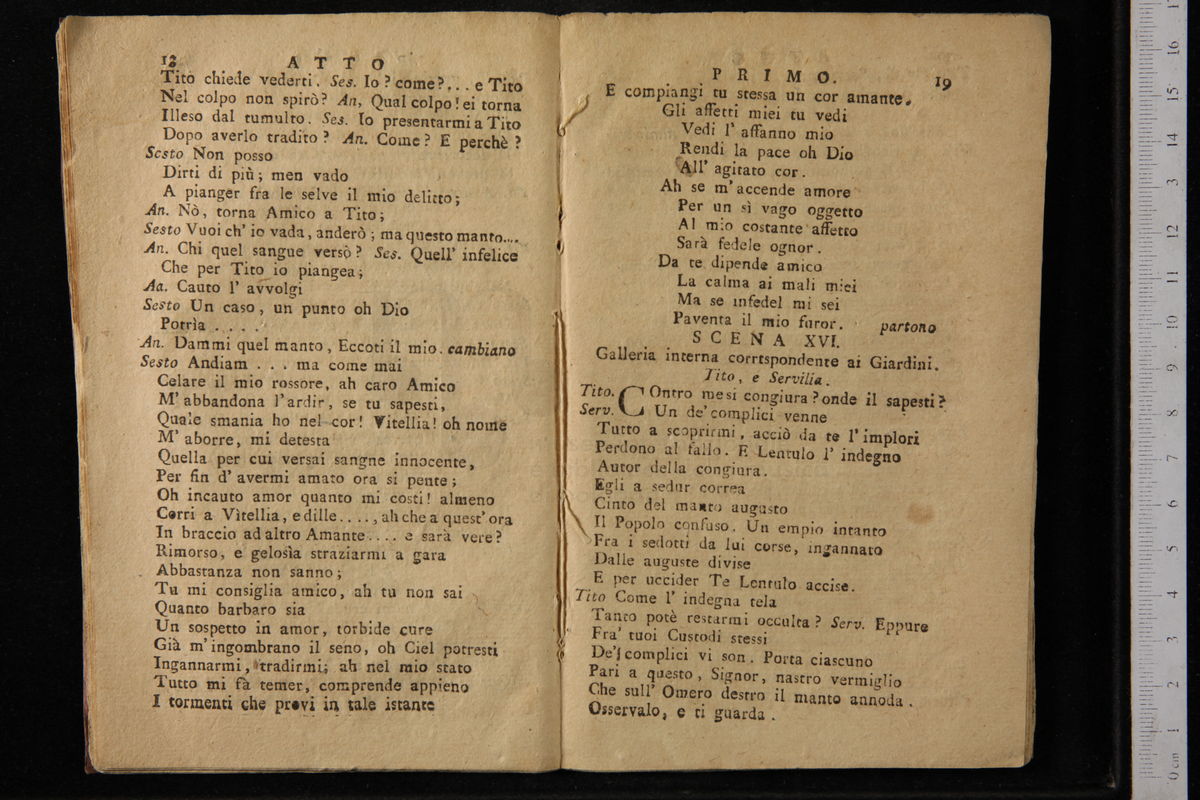 18 A T T O
Tito chiede vederti. Ses. Io? come?... e Tito
Nel colpo non spirò? An, Qual colpo! ei torna
Illeso dal tumulto. Ses. Io presentarmi a Tito
Dopo averlo tradito? An. Come? E perchè?
Sesto Non posso
Dirti di più; men vado
A pianger fra le selve il mio delitto;
An. Nò, torna Amico a Tito;
Sesto Vuoi ch' io vada, anderò; ma questo manto....
An. Chi quel sangue versò? Ses. Quell' infelice
Che per Tito io piangea;
Aa. Cauto l' avvolgi
Sesto Un caso, un punto oh Dio
Potrìa . . . .
An. Dammi quel manto, Eccoti il mio. cambiano
Sesto Andiam . . . ma come mai
Celare il mio rossore, ah caro Amico
M' abbandona l'ardir, se tu sapesti,
Quale smania ho nel cor! Vitellia! oh nome
M' aborre, mi detesta
Quella per cui versai sangne innocente,
Per fin d' avermi amato ora si pente;
Oh incauto amor quanto mi costi! almeno
Corri a Vitellia, e dille...., ah che a quest' ora
In braccio ad altro Amante.... e sarà vere?
Rimorso, e gelosìa straziarmi a gara
Abbastanza non sanno;
Tu mi consiglia amico, ah tu non sai
Quanto barbaro sia
Un sospetto in amor, torbide cure
Già m'ingombrano il seno, oh Ciel potresti
Ingannarmi, tradirmi; ah nel mio stato
Tutto mi fà temer, comprende appieno
I tormenti che provi in tale istante
P R I M O. 19
E compiangi tu stessa un cor amante.
Gli affetti miei tu vedi
Vedi l' affanno mio
Rendi la pace oh Dio
All' agitato cor.
Ah se m'accende amore
Per un sì vago oggetto
Al mio costante affetto
Sarà fedele ognor.
Da te dipende amico
La calma ai mali miei
Ma se infedel mi sei
Paventa il mio furor. partono
S C E N A XVI.
Galleria interna corrtspondente ai Giardini.
Tito, e Servilia.
Tito. COntro me si congiura? onde il sapesti?
Serv. Un de' complici venne
Tutto a scoprirmi, acciò da te l'implori
Perdono al fallo. E Lentulo l' indegno
Autor della congiura.
Egli a sedur correa
Cinto del manto augusto
Il Popolo confuso. Un empio intanto
Fra i sedotti da lui corse, ingannato
Dalle auguste divise
E per uccider Te Lentulo accise.
Tito Come l' indegna tela
Tanto potè restarmi occulta? Serv. Eppure
Fra' tuoi Custodi stessi
De' complici vi son. Porta ciascuno
Pari a questo, Signor, nastro vermiglio
Che sull' Omero destro il manto annoda.
Osservalo, e ti guarda.
0 cm 1 2 3 4 5 6 7 8 9 10 11 12 13 14 15 16 17